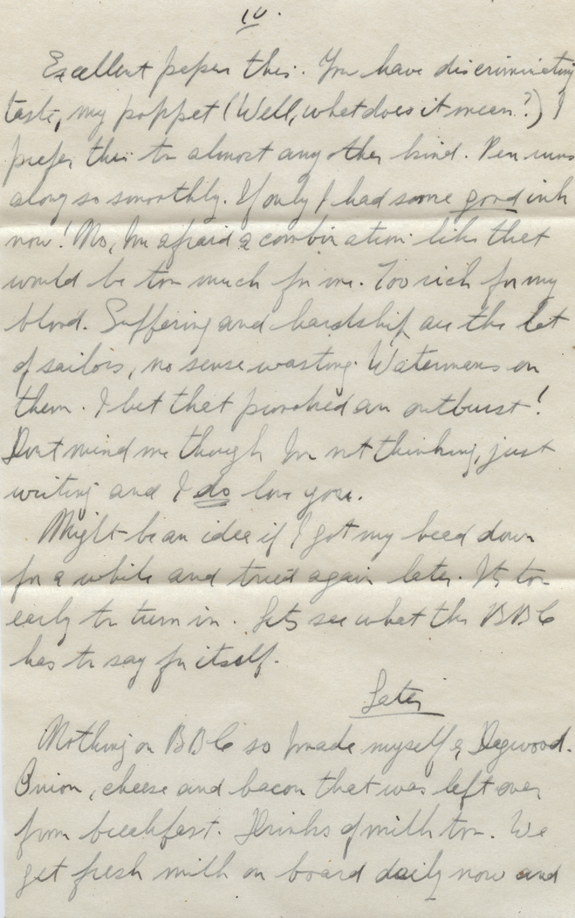 10.
Excellent paper this. You have discriminating
taste, my poppet (Well, what does it mean?) I
prefer this to almost any other kind. Pen runs
along so smoothly. If only I had some good ink
now! No, Im afraid a combination like that
would be too much for me. Too rich for my
blood. Suffering and hardship are the lot
of sailors, no sense wasting Watermans on
them. I bet that provoked an outburst!
Dont mind me though Im not thinking, just
writing and I do love you.
Might be an idea if I got my head down
for a while and tried again later. Its too
early to turn in. Lets see what the BBC
has to say for itself.
Later
Nothing on BBC so I made myself a Dagwood.
Onion, cheese and bacon that was left over
from breakfast. Drinks of milk too. We
get fresh milk on board daily now and